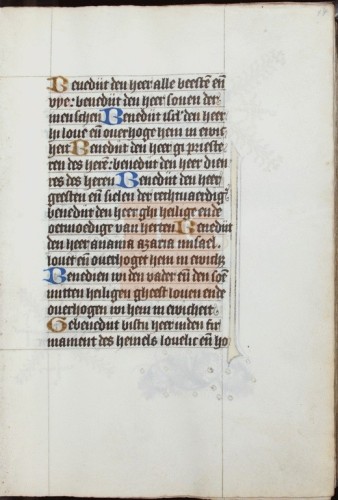 Benediit den heer alle beesten en̄
vye: benediit den heer sonen der
menschen Benediit isr̄l den heer
hi loue en̄ ouerhoge hem in ewic
heit Benediit den heer gi prieste
ren des heren: benediit den heer dien
res des heren Benediit den heer
geesten en̄ sielen der rechtuaerdigē
benediit den heer ghi heilige ende
oetmoedige van herten Benediit
den heer anania azaria misael.
louet en̄ ouerhoget hem in ewichz
Benedien wi den vader en̄ den sone
mitten heiligen gheest louen ende
ouerhogen wi hem in ewicheit
Gebenediit bistu heer inden fir
mament des hemels louelic en̄ ho